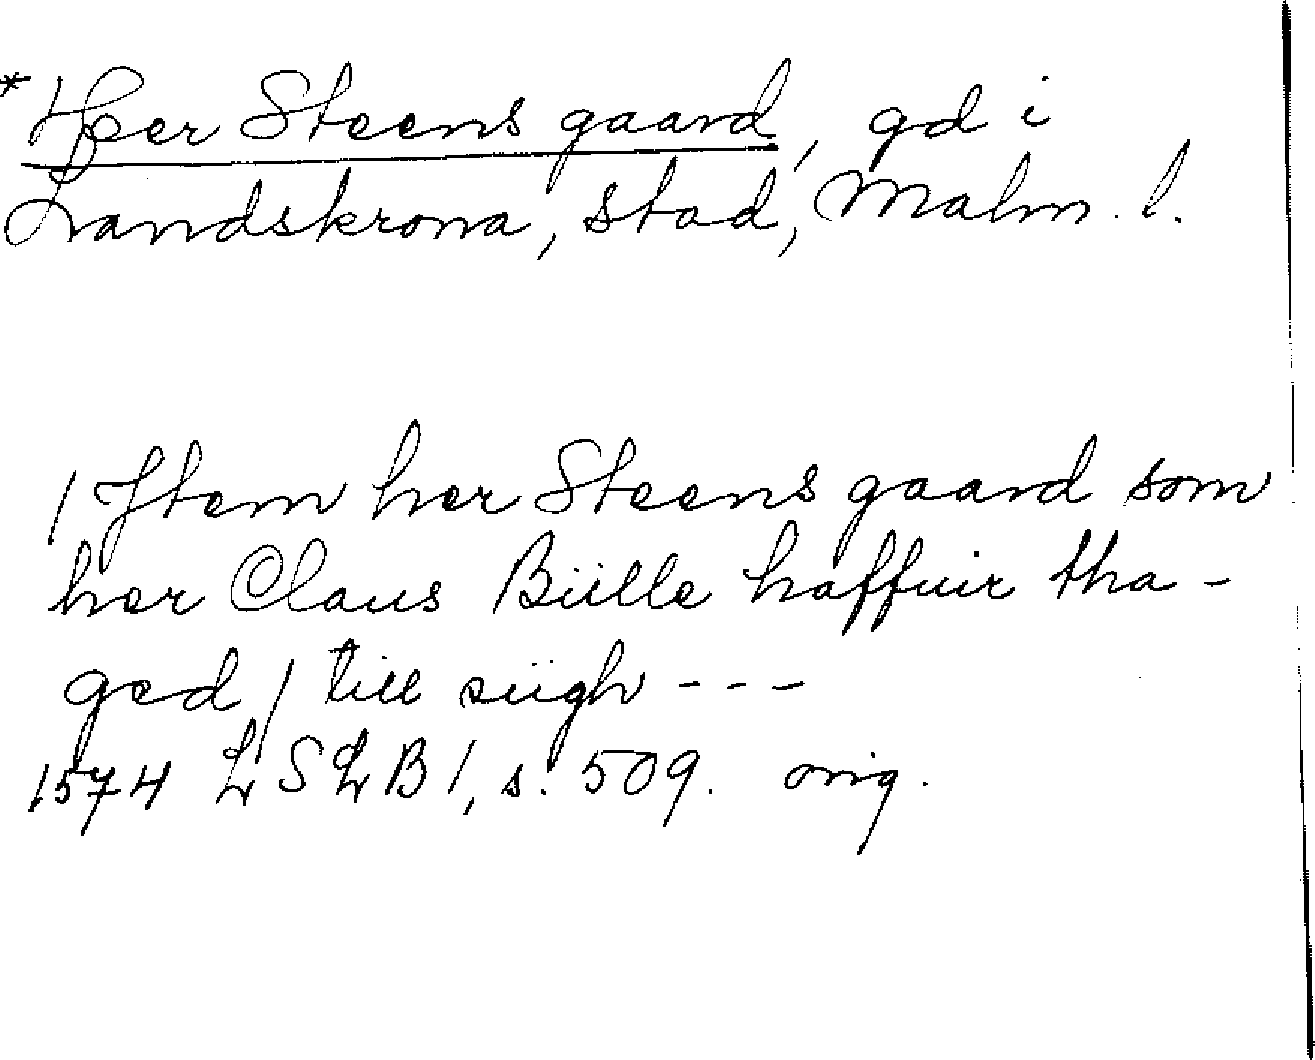 *Heer Steens gaard, gd i
Landskrona, stad, Malm. l.
/ Jtem her Steens gaard som
her Claus Bülle haffuir tha-
ged / till siigh ---
1574 LSLB 1, s. 509. orig.